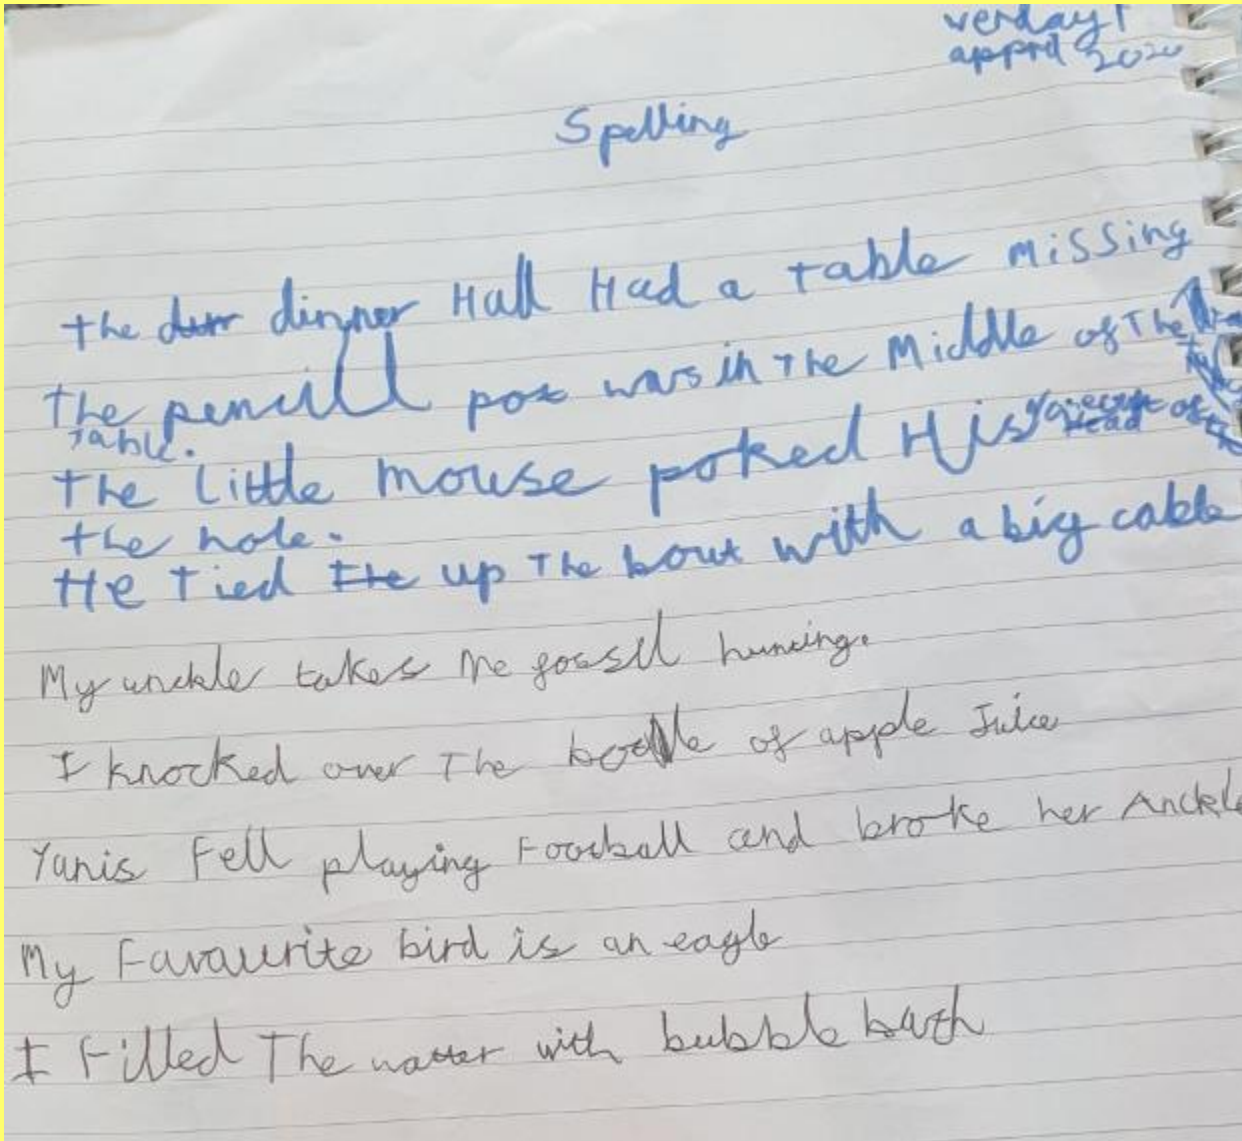 verday 1
appril 2020
Spelling
the dinner Hall Had a table missing
the pencill pot was in The Middle of The
table.
the little mouse poked His Head of
the hole.
He tied the up The bout with a big cable
My unckle takes Me fossil hunting.
I knocked over The bottle of apple Juice
Yanis Fell playing Football and broke her Anckle
My Favaurite bird is an eagle
I Filled The watter with bubble bath